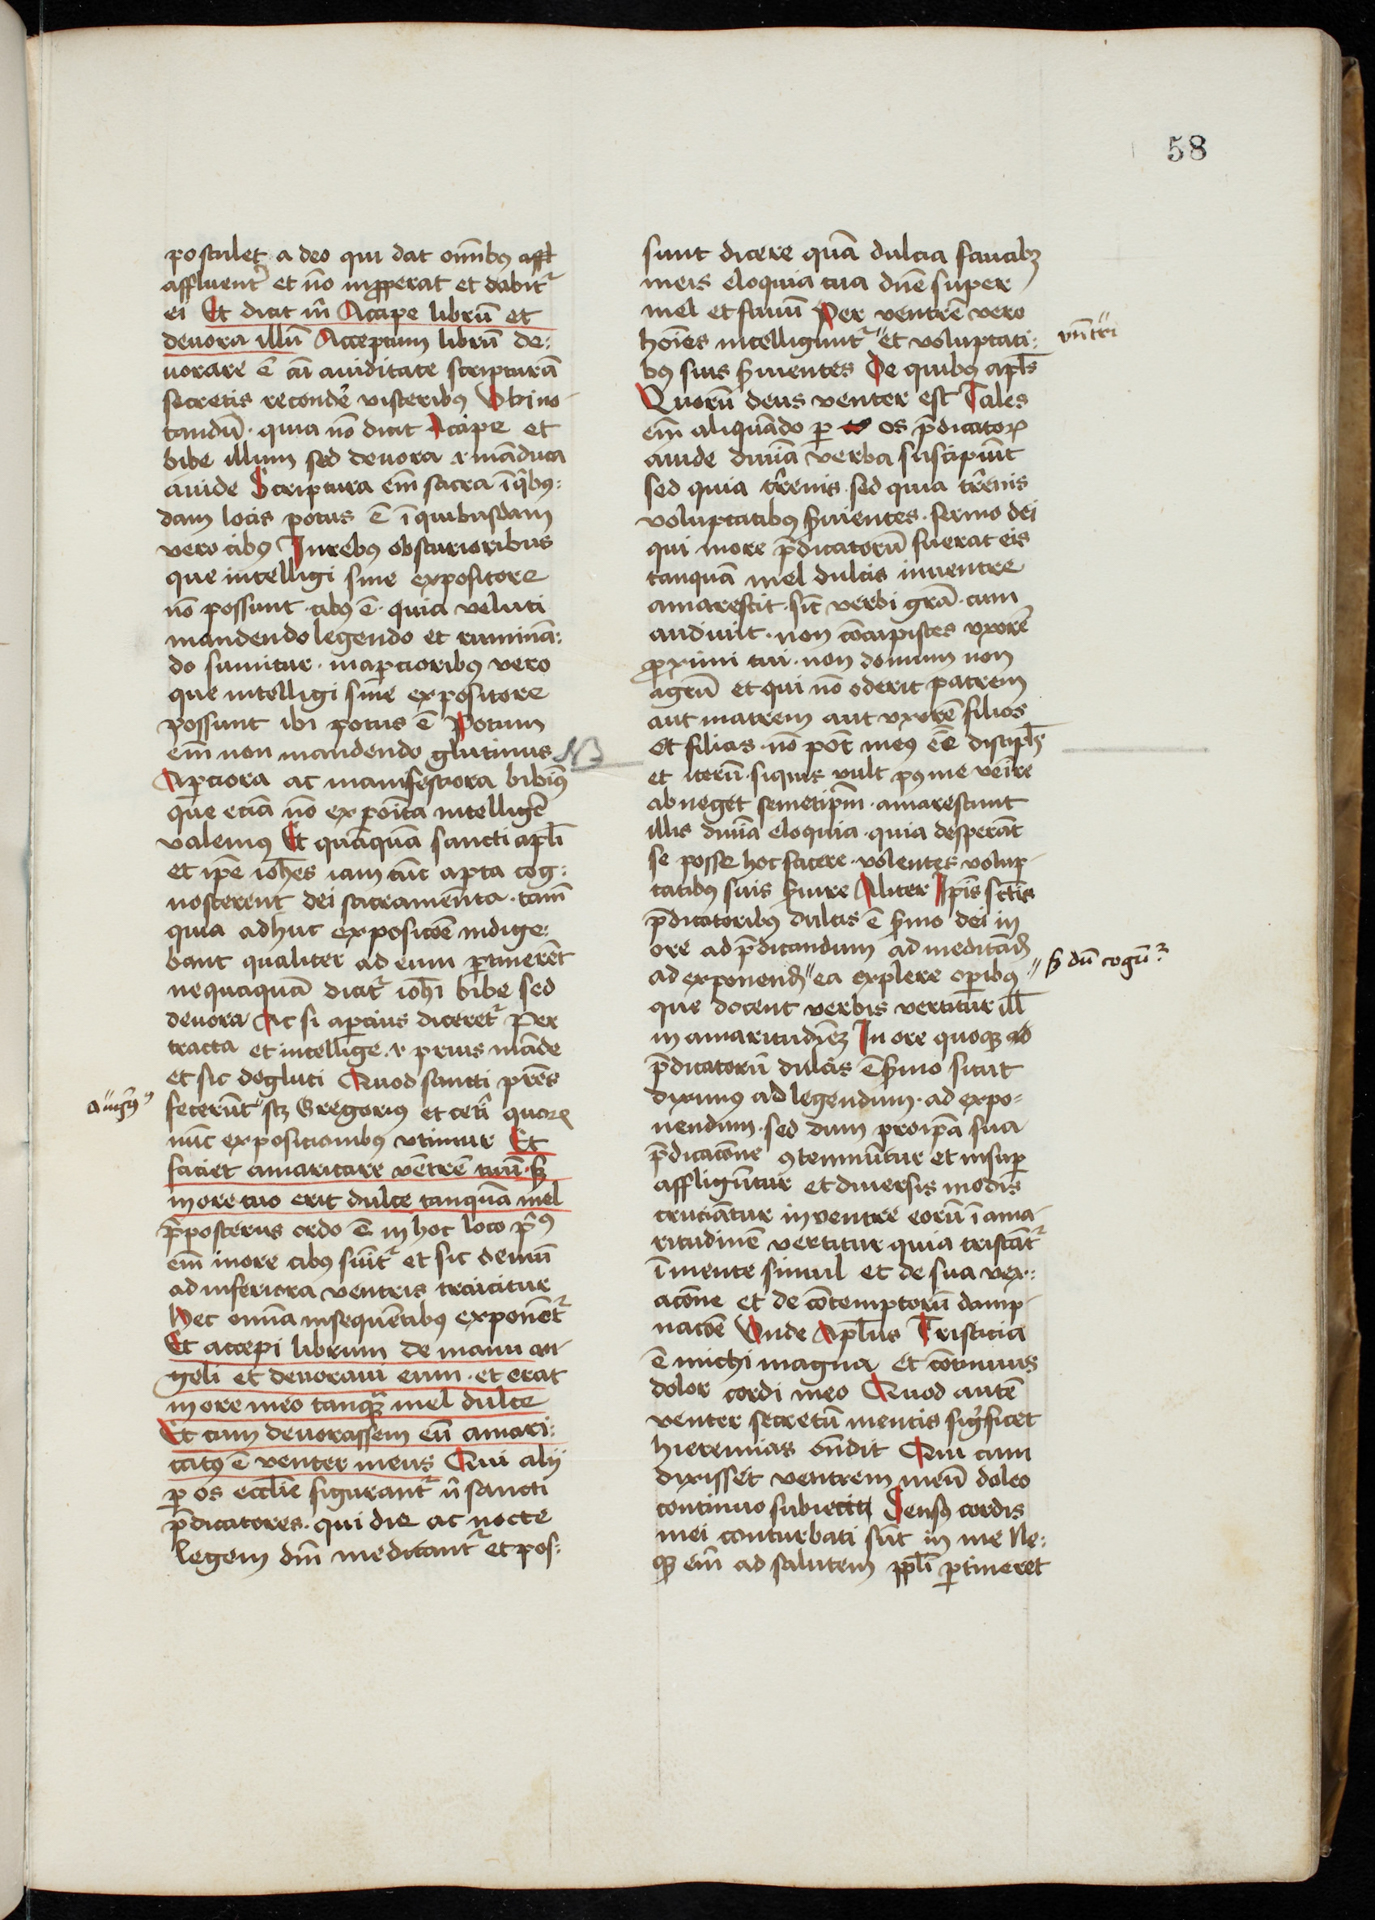 58
postulet a deo qui dat om̄ibus affl
affluent᷑ et nō inꝓperat et dabit᷑
ei Et dicit m̄ Accipe librū et
deuora illū Acceptum librū de:
uorare ē cū auiditate scripturā
secretis recond᷑e visceribus Vbi no-
tandū · quia nō dicit Accipe et
bibe illum sed deuora ⁊ māduca
auide Scriptura em̄ sacra ī q̇bus:
dam locis potus ē ī quibusdam
vero cibus In rebus obscurioribus
que intelligi sine expositore
nō possunt · cibus ē · quia veluti
mandendo legendo et ruminā:
do sumitur · in aꝑcioribus vero
que intelligi sine expositore
possunt ibi potus ē Potum
em̄ non mandendo glutimus
NB
Aꝑciora ac manifestiora bibimꝰ
que eciā nō expoīta intellig᷑e
valemus Et quāquā sancti apl̄i
et ip̄e ioh̄es iam tūc aꝑta cog:
noscerent dei sacramenta · tam̄
quia adhuc exposicōe indige:
bant qualiter ad eum ꝑtinerēt
nequaquā dicit᷑ ioh̄i bibe sed
deuora Ac si aꝑcius diceret᷑ Per
tracta et intellige · ⁊ prius māde
et sic degluti Quod sancti pr̄es
augꝰ
fecerūt sꝫ Gregorius et cet̄i quoꝝ
nūc exposicionibus vtimur Et
faciet amaricare ventrē tuū · sꝫ
in ore tuo erit dulce tanquā mel
p̄posterus ordo ē in hoc loco p̄ꝰ
em̄ in ore cibus sūit᷑ et sic demū
ad inferiora ventris traicitur
Hec omnia in sequētibus exponēt᷑
Et accepi librum de manu an-
geli et deuoraui eum · et erat
in ore meo tanqꝫ mel dulce
Et cum deuorassem eū amari:
catus ē venter meus Qui alij
ꝑ os eccl̄ie figurant᷑ n̄ sancti
p̄dicatores · qui die ac nocte
legem dn̄i meditant᷑ et pos:
sunt dicere quā dulcia faucibꝫ
meis eloquia tua dn̄e super
mel et fauū Per ventrē vero
hoīes intelligunt᷑ 〃 et voluptati:
vn̄tri
bus suis ẜuientes De quibus apl̄s
Quorū deus venter est Tales
em̄ aliquādo ꝑ os p̄dicatoꝝ
auide diuīa verba suscipiūt
sed quia t̄renis · sed quia t̄renis
voluptatibus ẜuientes · sermo dei
qui in ore p̄dicatorū fuerat eis
tanquā mel dulcis in ventre
amarescit · sic̄ verbi grā · cum
audiūt · non cōcupisces vxorē
ꝓximi tui · non domum non
agrū et qui nō oderit patrem
aut matrem aut vxorē filios
et filias · nō pōt meus ēē discipl̄s
et iterū · siquis vult pꝰ me veīre
abneget semetip̄m · amarescunt
illis diuīa eloquia · quia desperāt
se posse hoc facere · volentes volup-
tatibus suis ẜuire Aliter Ip̄is sc̄tis
p̄dicatoribus dulcis ē ẜmo dei in
ore ad p̄dicandum ad meditād̄
ad exponend̄ 〃 ea exꝑlere oꝑibus
〃 ẜ dū cogūt᷑
que docent verbis vertitur ill̄
in amaritudīeꝫ In ore quoqꝫ
p̄dicatorū dulcis ē ẜmo sicut
diximus ad legendum · ad expo-
nendum · sed dum pro ip̄a sua
p̄dicacōne ꝯtemnūtur et insuꝑ
affligūtur et diuersis modis
cruciātur in ventre eorū ī ama-
ritudinē vertitur quia tristāt᷑
ī mente simul et de sua vex-
acōne et de cōtemptorū damp-
nacōe Vnde Apl̄us Tristicia
ē michi magna et cōtinuus
dolor cordi meo Quod autē
venter secretū mentis sig̓ficet
hieremias on̄dit Qui cum
dixisset ventrem meū doleo
continuo subiecit Sensꝰ cordis
mei conturbati sūt in me Ne:
qꝫ em̄ ad salutem ppl̄i ꝑtineret